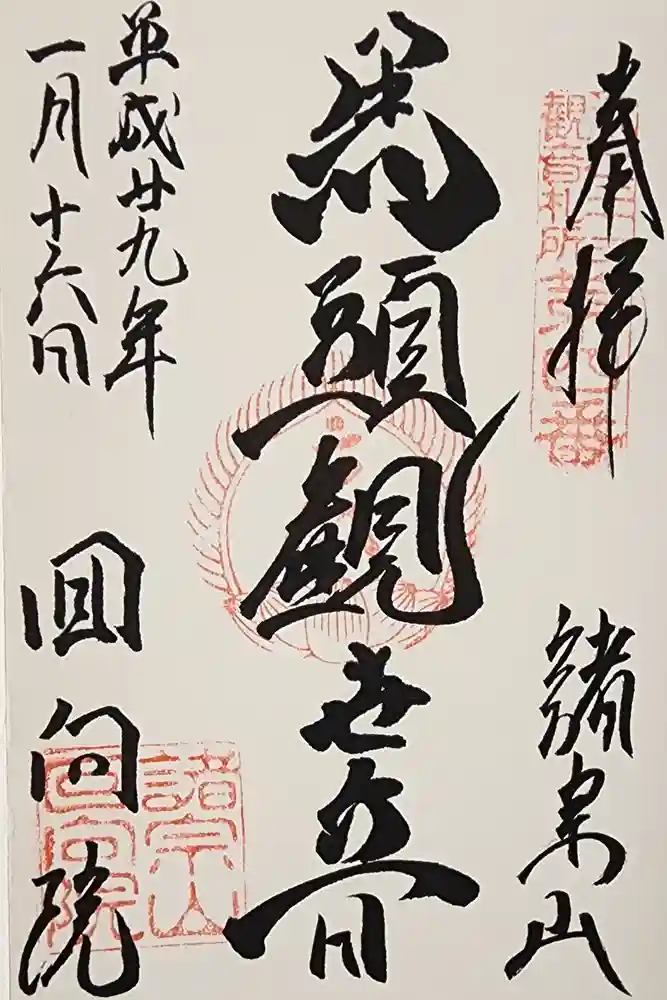 奉拝
諸宗山
馬頭観世音
平成廿九年
一月十六日
回向院
観音札所第四番
諸宗山
回向院